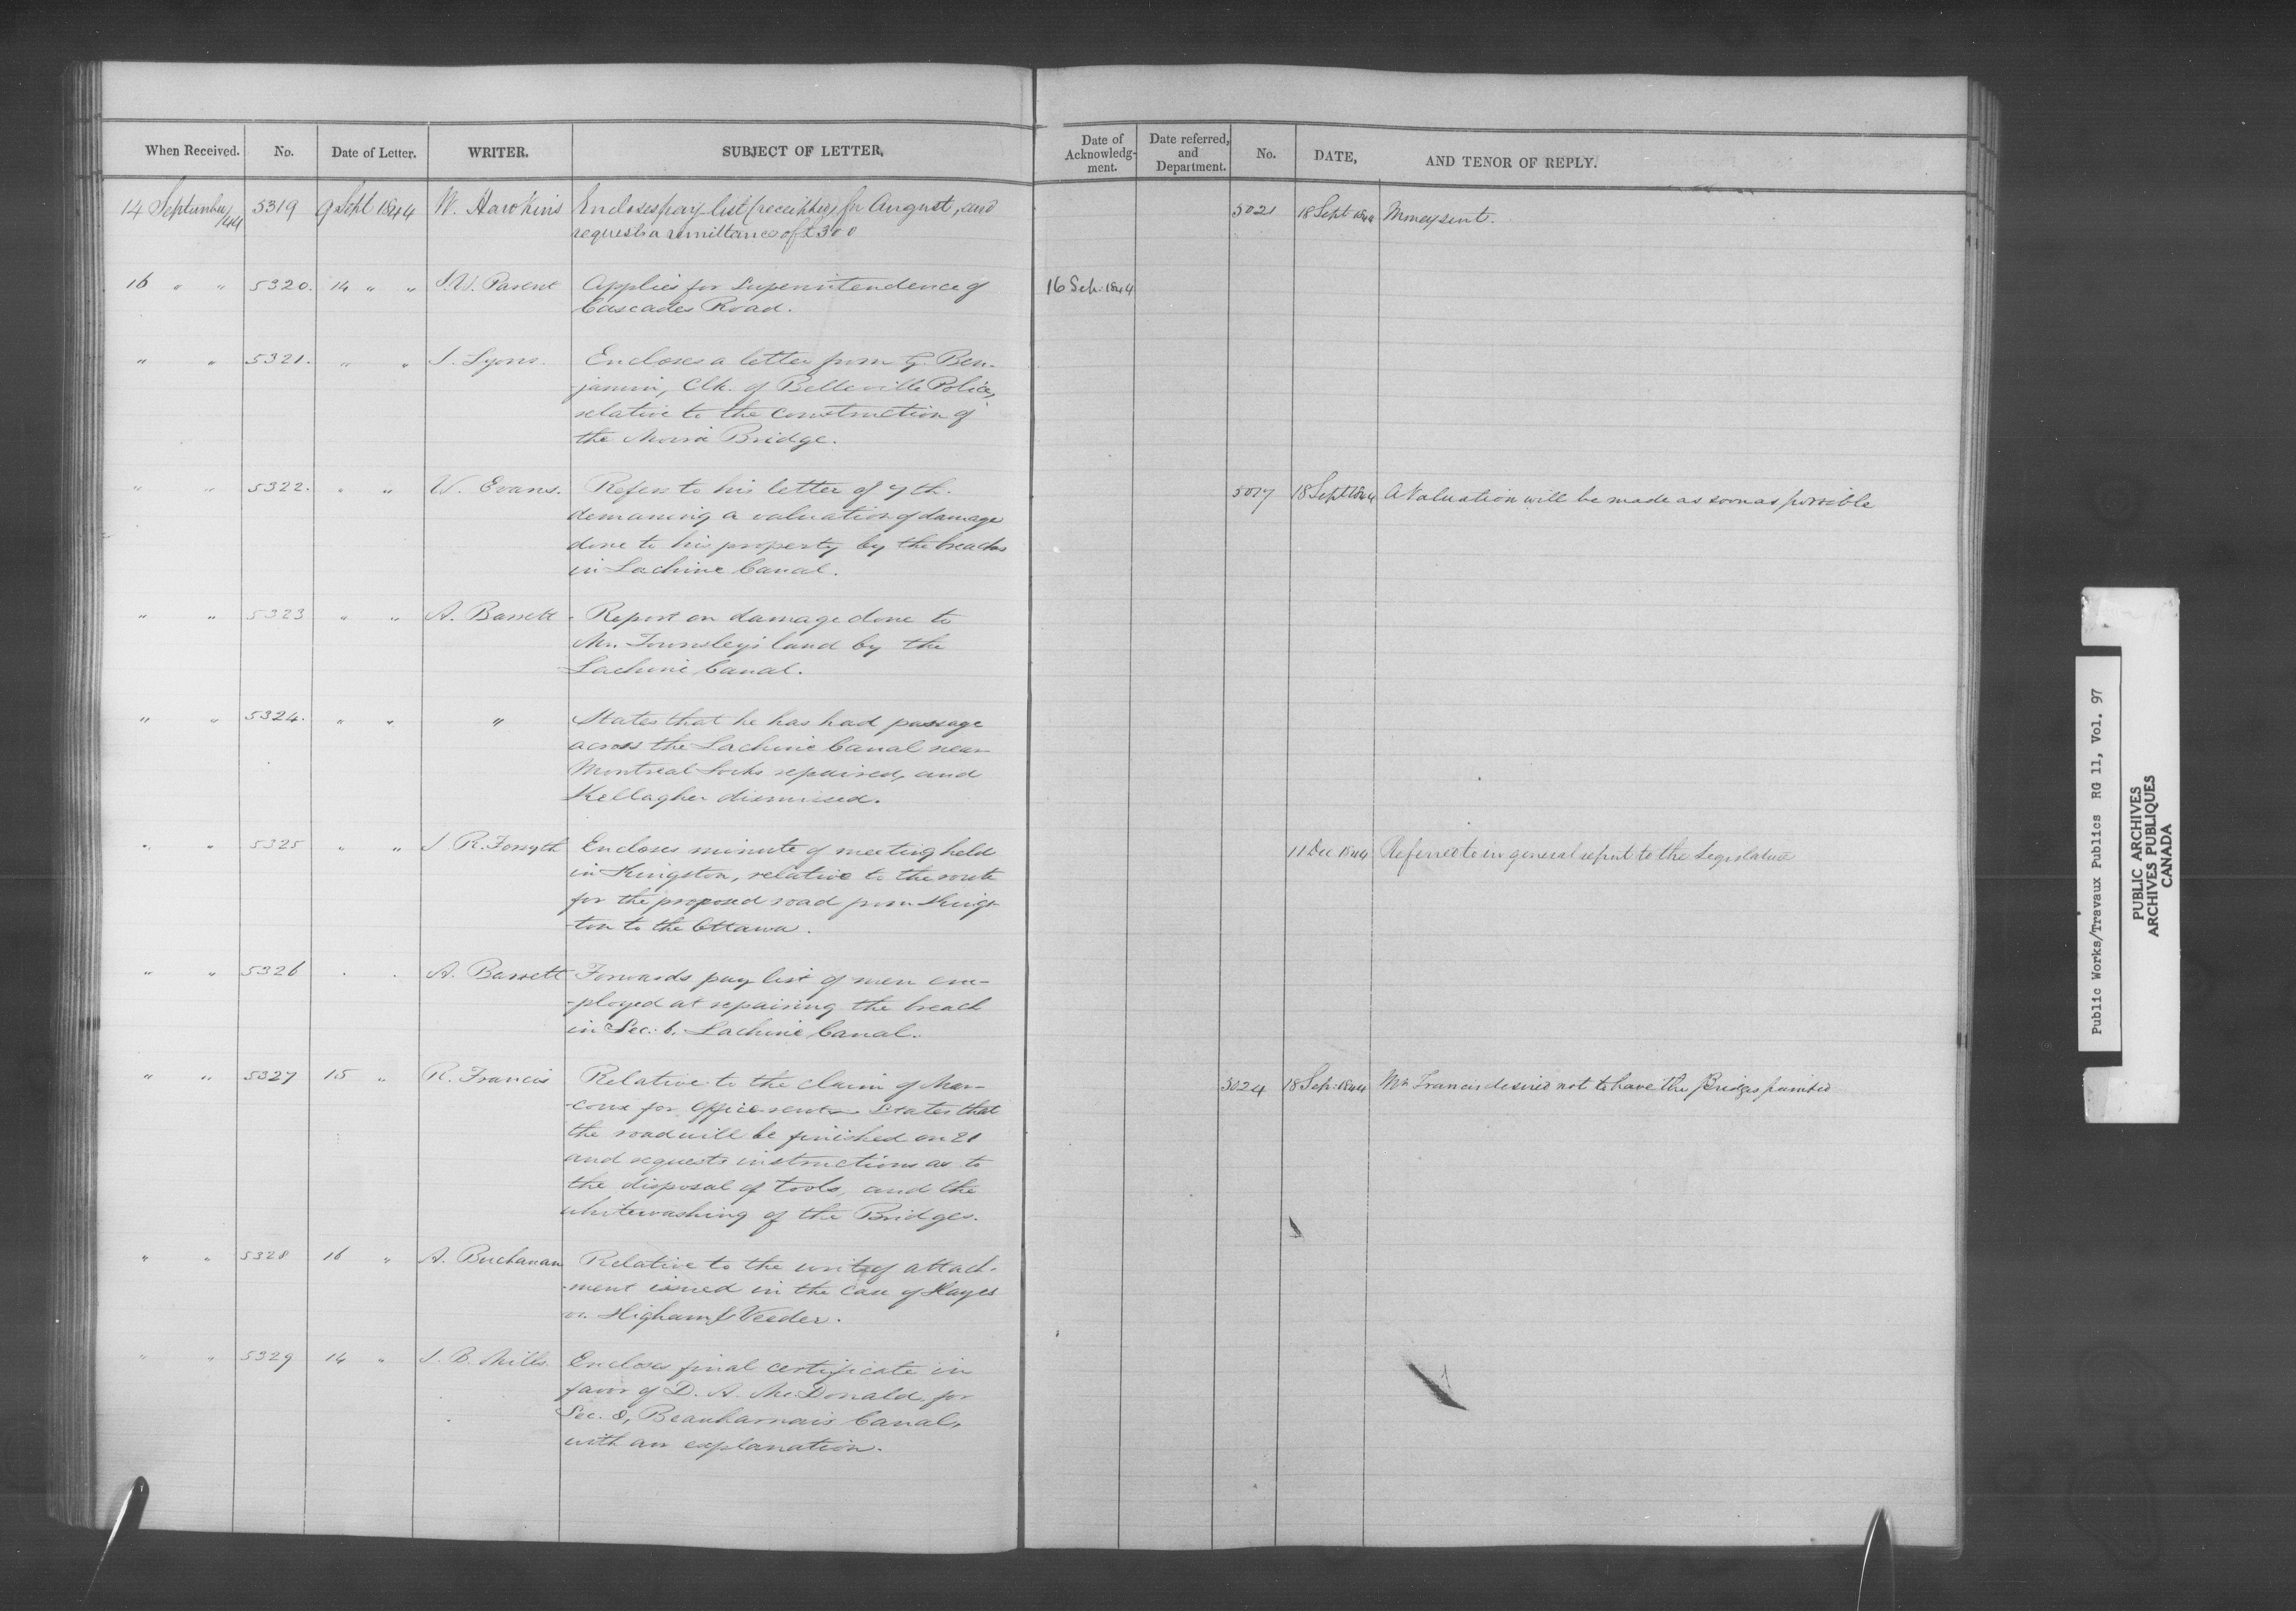 When Received. No. Date of Letter. WRITER. SUBJECT OF LETTER.
Date of Acknowledg-ment. Date referred, and Department. No. DATE, AND TENOR OF REPLY.
14 September /44 5319 9 Sept 1844 W. Hawkins Encloses pay list (receipted) for August, and
requests a remittance of £300
5021 18 Sept 1844 Money sent.
16 " " 5320. 14 " " J. W. Parent Applies for Superintendence of
Cascades Road.
16 Sep. 1844
" " 5321. " " J. Lyons. Encloses a letter from G. Ben-
-jamin, Clk. of Belleville Police,
relative to the construction of
the Moira Bridge.
" " 5322. " " W. Evans. Refers to his letter of 7th.
demanding a valuation of damage
done to his property by the breaches
in Lachine Canal.
5017 18 Sept 1844 A Valuation will be made as soon as possible
" " 5323 " " A. Barrett Report on damage done to
Mr. Townsley's land by the
Lachine Canal.
" " 5324. " " " States that he has had passage
across the Lachine Canal near
Montreal Locks repaired, and
Kellagher dismissed.
" " 5325 " " J. R. Forsyth Encloses minute of meeting held
in Kingston, relative to the route
for the proposed road from Kings-
-ton to the Ottawa.
11 Dec 1844 Referred to in general report to the Legislature
" " 5326 " " A. Barrett Forwards pay list of men em-
-ployed at repairing the breach
in Sec. 6. Lachine Canal.
" " 5327 15 " R. Francis Relative to the claim of Mar-
-coux for office rent. States that
the road will be finished on 21
and requests instructions as to
the disposal of tools, and the
whitewashing of the Bridges.
5024 18 Sep. 1844 Mr. Francis desired not to have the Bridges painted
" " 5328 16 " A. Buchanan Relative to the writ of attach-
-ment issued in the case of Hayes
vs. Higham & Veeder.
" " 5329 14 " J. B. Mills. Encloses final certificate in
favor of D. A. McDonald, for
Sec. 8, Beauharnois Canal,
with an explanation.
Public Works/Travaux Publics RG 11, Vol. 97
PUBLIC ARCHIVES
ARCHIVES PUBLIQUES
CANADA